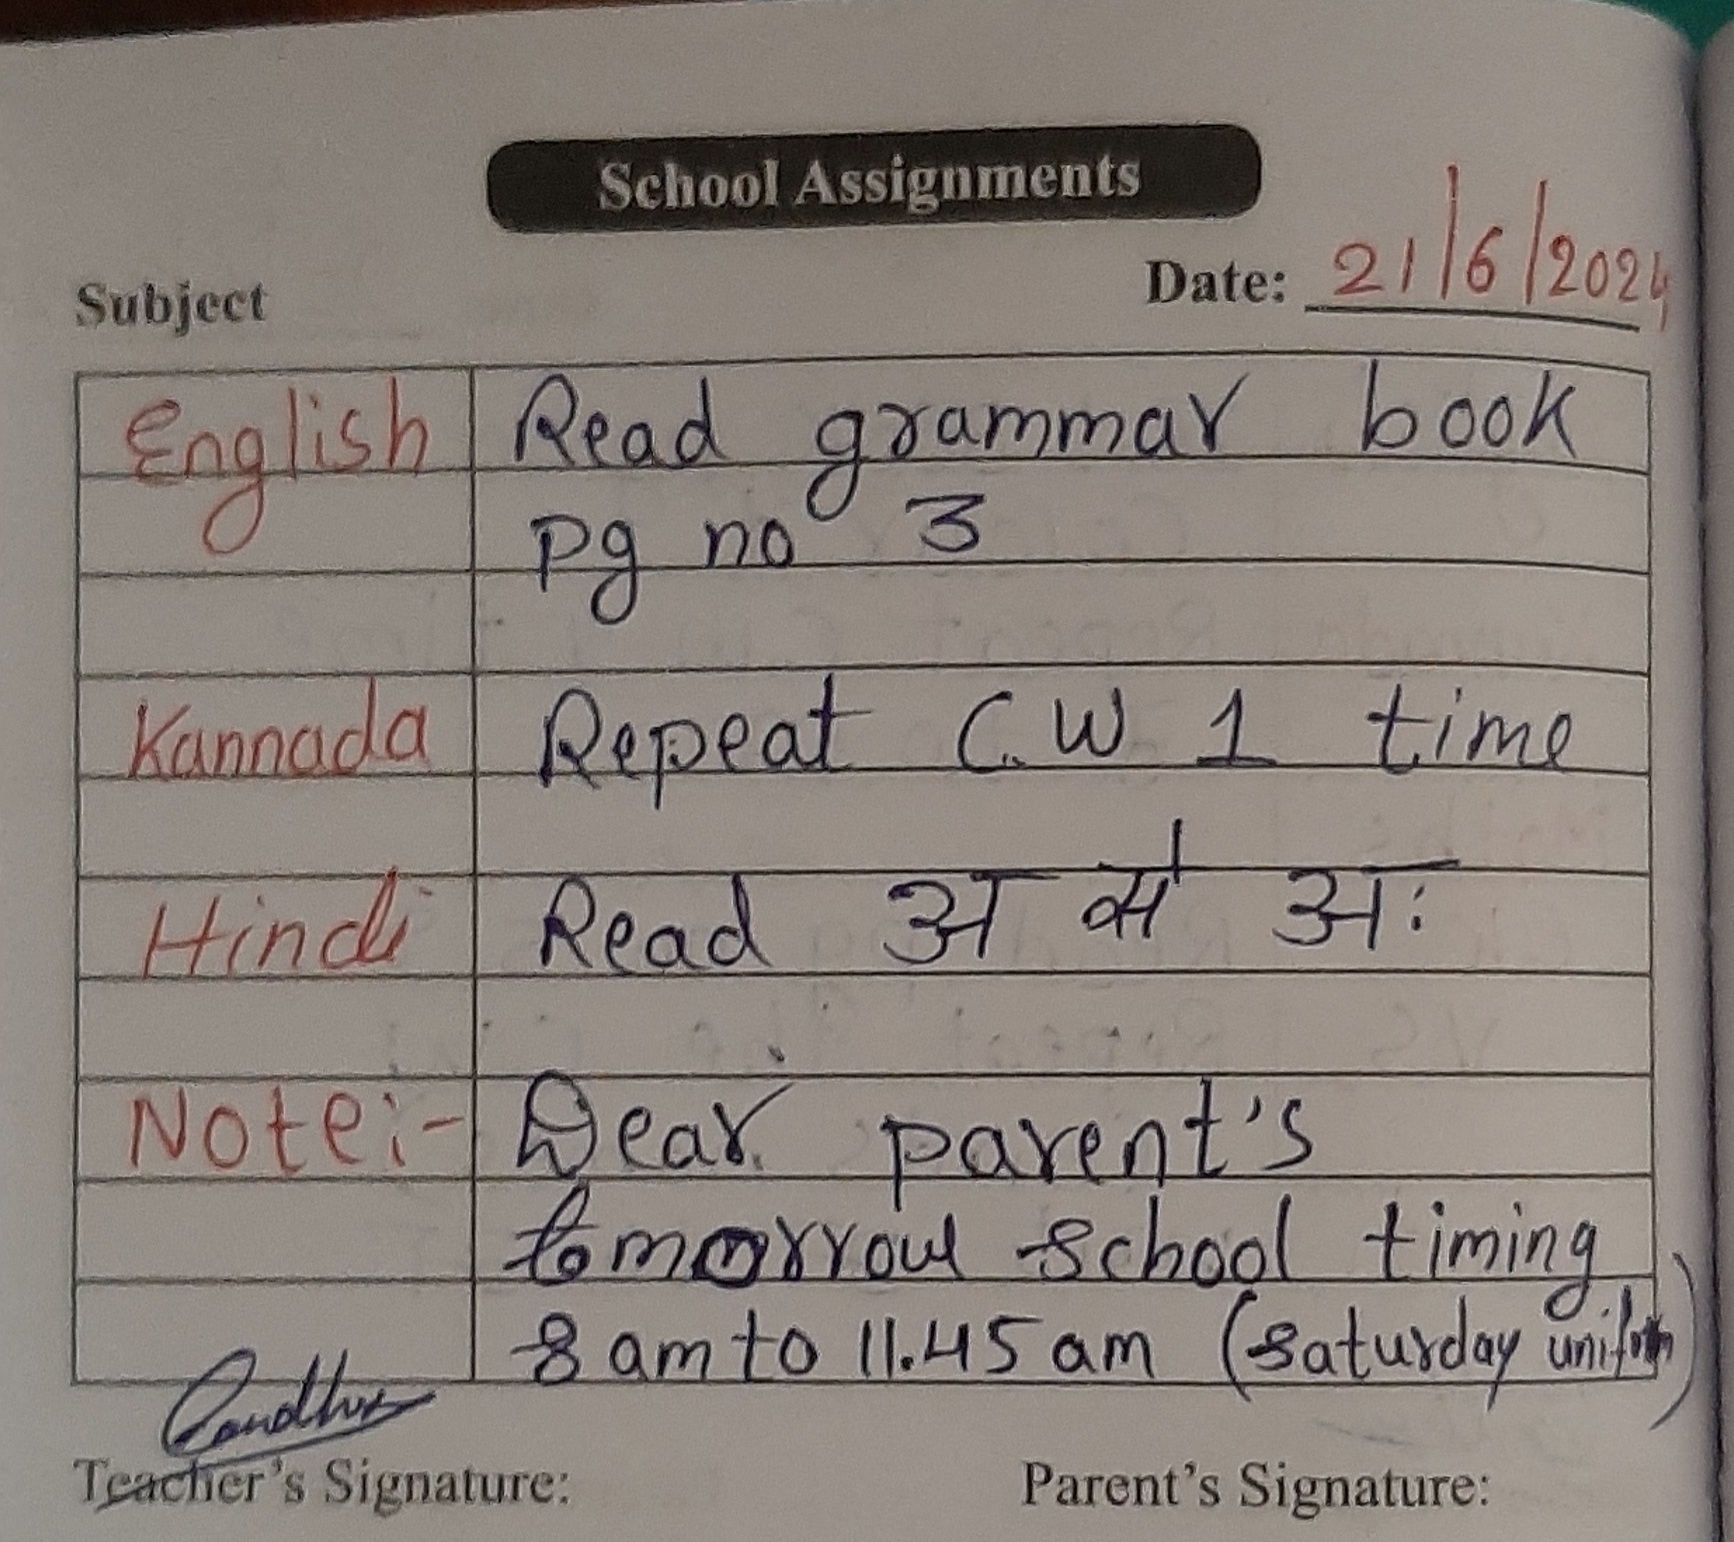 School Assignments
Subject
Date: 21/6/2024
English Read grammar book
pg no 3
Kannada Repeat C.W 1 time
Hindi Read अ से अः
Note:- Dear parent's
tomorrow school timing
8 am to 11.45 am (Saturday uniform)
Teacher's Signature:
Parent's Signature: